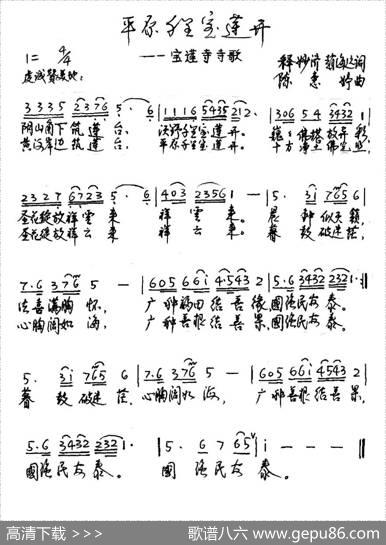 平原千里宝莲开
——宝莲寺寺歌
1= 4/4
虔诚赞美地:
词
陈 曲
3 3 3 5 2 3 7 6 5· 6 | 1 1 1 6 5 4 3 5 2 1 2· | 3 0 6 5 4 3 4 3 2 |
阴山脚下筑莲台, 沃野千里宝莲开。
黄河岸边筑莲台, 平原千里宝莲开。
2 3 2 7 6 7 2 3 5 · 6 | 4 0 3 2 3 5 6 1 — | 5· 3 i 7 6 5 6 |
圣花绽放祥云来 祥云来。 晨钟似天籁
圣花绽放祥云来 祥云来。 暮鼓破迷茫,
7·6 3 7 6 5 — | 6 0 5 6 6 i 4·5 4 3 2 | 5·6 3 4 3 2 2 3 2 1· :||
法喜满胸怀, 广种福田结善缘國强民安泰。
心胸阔如海, 广种善根结善果國强民安泰。
5· 3 i 7 6 5 6 | 7·6 3 7 6 5 — | 6 0 5 6 6 i 4 5 4 3 2 |
暮鼓破迷茫, 心胸阔如海, 广种善根结善果,
5·6 3 4 3 2 2 3 2 1· | 5· 6 7 6 5 | i — — — ||
國强民安泰。 國强民安泰。
高清下载 >>>
歌谱八六 www.gepu86.com